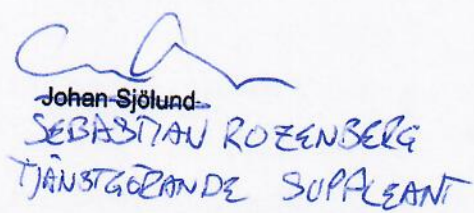 Johan Sjölund
SEBASTIAN ROZENBERG
TJÄNSTGÖRANDE SUPPLEANT